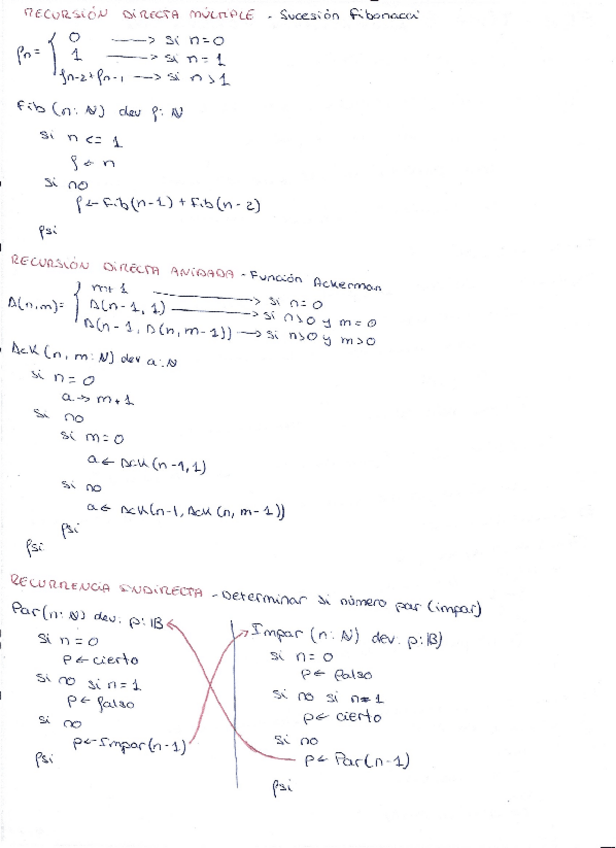 RECURSIÓN DIRECTA MÚLTIPLE - Sucesión Fibonacci
fn = { 0 ---> si n=0
1 ---> si n=1
fn-2+fn-1 ---> si n>1
Fib (n: N) dev f: N
si n <= 1
f ← n
si no
f ← Fib(n-1) + Fib(n-2)
fsi
RECURSIÓN DIRECTA ANIDADA - Función Ackerman
A(n,m)= { m+1 ---> si n=0
A(n-1,1) ---> si n>0 y m=0
A(n-1, A(n,m-1)) ---> si n>0 y m>0
Ack (n, m: N) dev a: N
si n=0
a → m+1
si no
si m=0
a ← Ack(n-1,1)
si no
a ← Ack(n-1, Ack(n, m-1))
fsi
fsi
RECURRENCIA INDIRECTA - Determinar si número par (impar)
Par(n: N) dev. p: IB
si n=0
p ← cierto
si no si n=1
p ← falso
si no
p ← Impar(n-1)
fsi
Impar (n: N) dev. p: IB)
si n=0
p ← falso
si no si n=1
p ← cierto
si no
p ← Par(n-1)
fsi